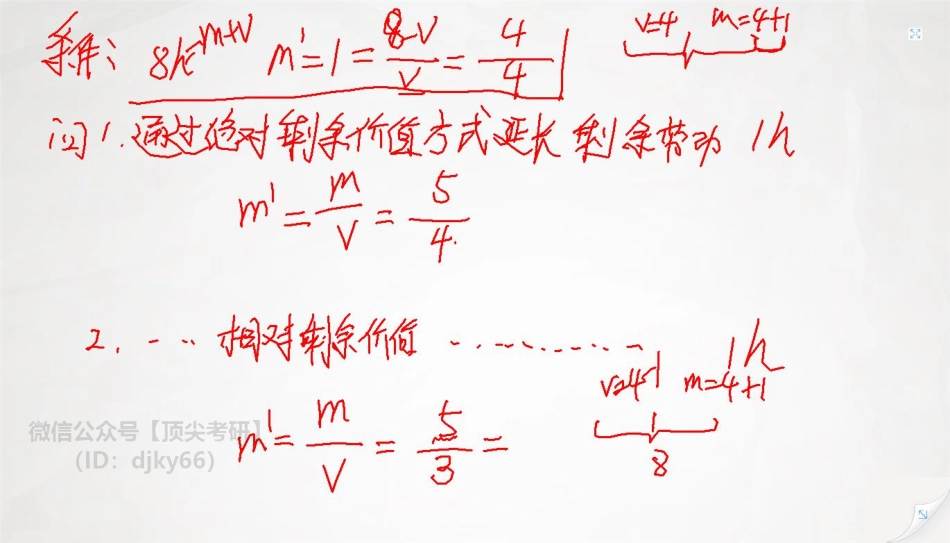 条件: 8h=m+v m'=1=8-v/v=4/4
v=4 m=4+1
问1.通过绝对剩余价值方式延长剩余劳动 1h
m'=m/v=5/4
2. ... 相对剩余价值 ........... 1h
v=4-1 m=4+1
8
m'=m/v=5/3=
微信公众号【顶尖考研】
(ID: djky66)